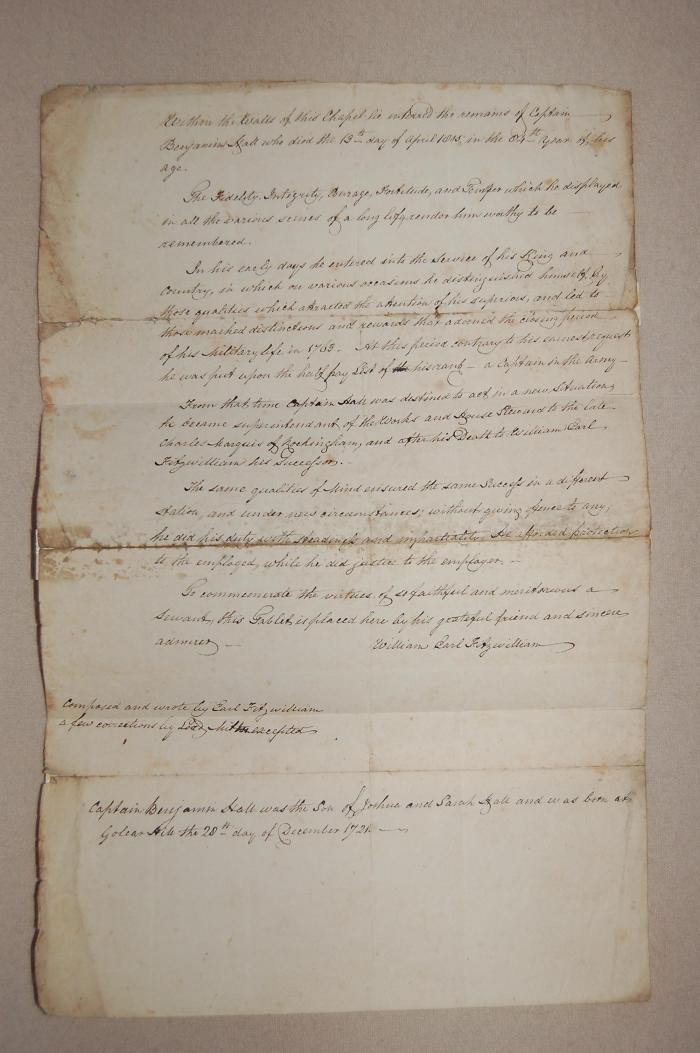 Within the Walls of this Chapel lie interred the remains of Captain
Benjamin Hall who died the 13th day of April 1805, in the 84th Year of his
age.
The Fidelity, Integrity, Courage, Fortitude, and Temper which he displayed
in all the various scenes of a long life, render him worthy to be
remembered.
In his early days he entered into the Service of his King and
Country, in which on various occasions he distinguished himself, by
those qualities which attracted the attention of his superiors, and led to
those marked distinctions and rewards that adorned the closing period
of his Military life in 1763. At this period contrary to his earnest request
he was put upon the half pay List of his rank – a Captain in the Army –
From that time Captain Hall was destined to act in a new Situation,
he became superintendant of the Works and House Steward to the late
Charles Marquis of Rockingham, and after his Death to William Earl
Fitzwilliam his Successor. –
The same qualities of Mind ensured the same Success in a different
Station, and under new circumstances, without giving offence to any,
he did his duty with steadiness and impartiality. He afforded protection
to the employed, while he did justice to the employer. –
To commemorate the virtues of so faithful and meritorious a
Servant, this Tablet is placed here by his grateful friend and sincere
admirer – William Earl Fitzwilliam
Composed and wrote by Earl Fitzwilliam
a few corrections by excepted
Captain Benjamin Hall was the Son of Joshua and Sarah Hall and was born at
Golcar Hill the 28th day of December 1721.